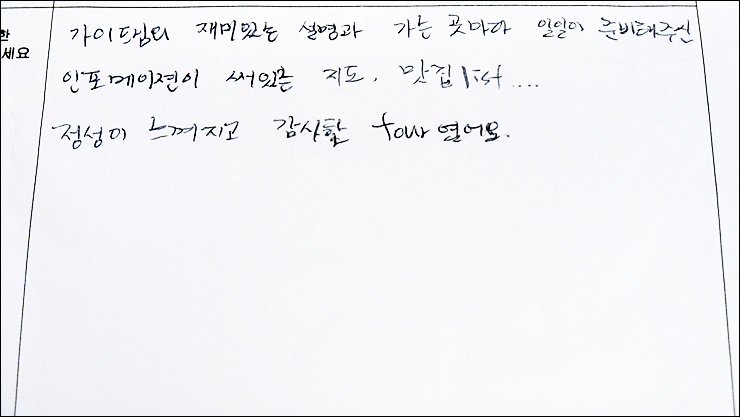 한
세요
가이드님의 재미있는 설명과 가는 곳마다 일일이 준비해주신
인포메이션이 써있는 지도, 맛집 list....
정성이 느껴지고 감사한 tour 였어요.